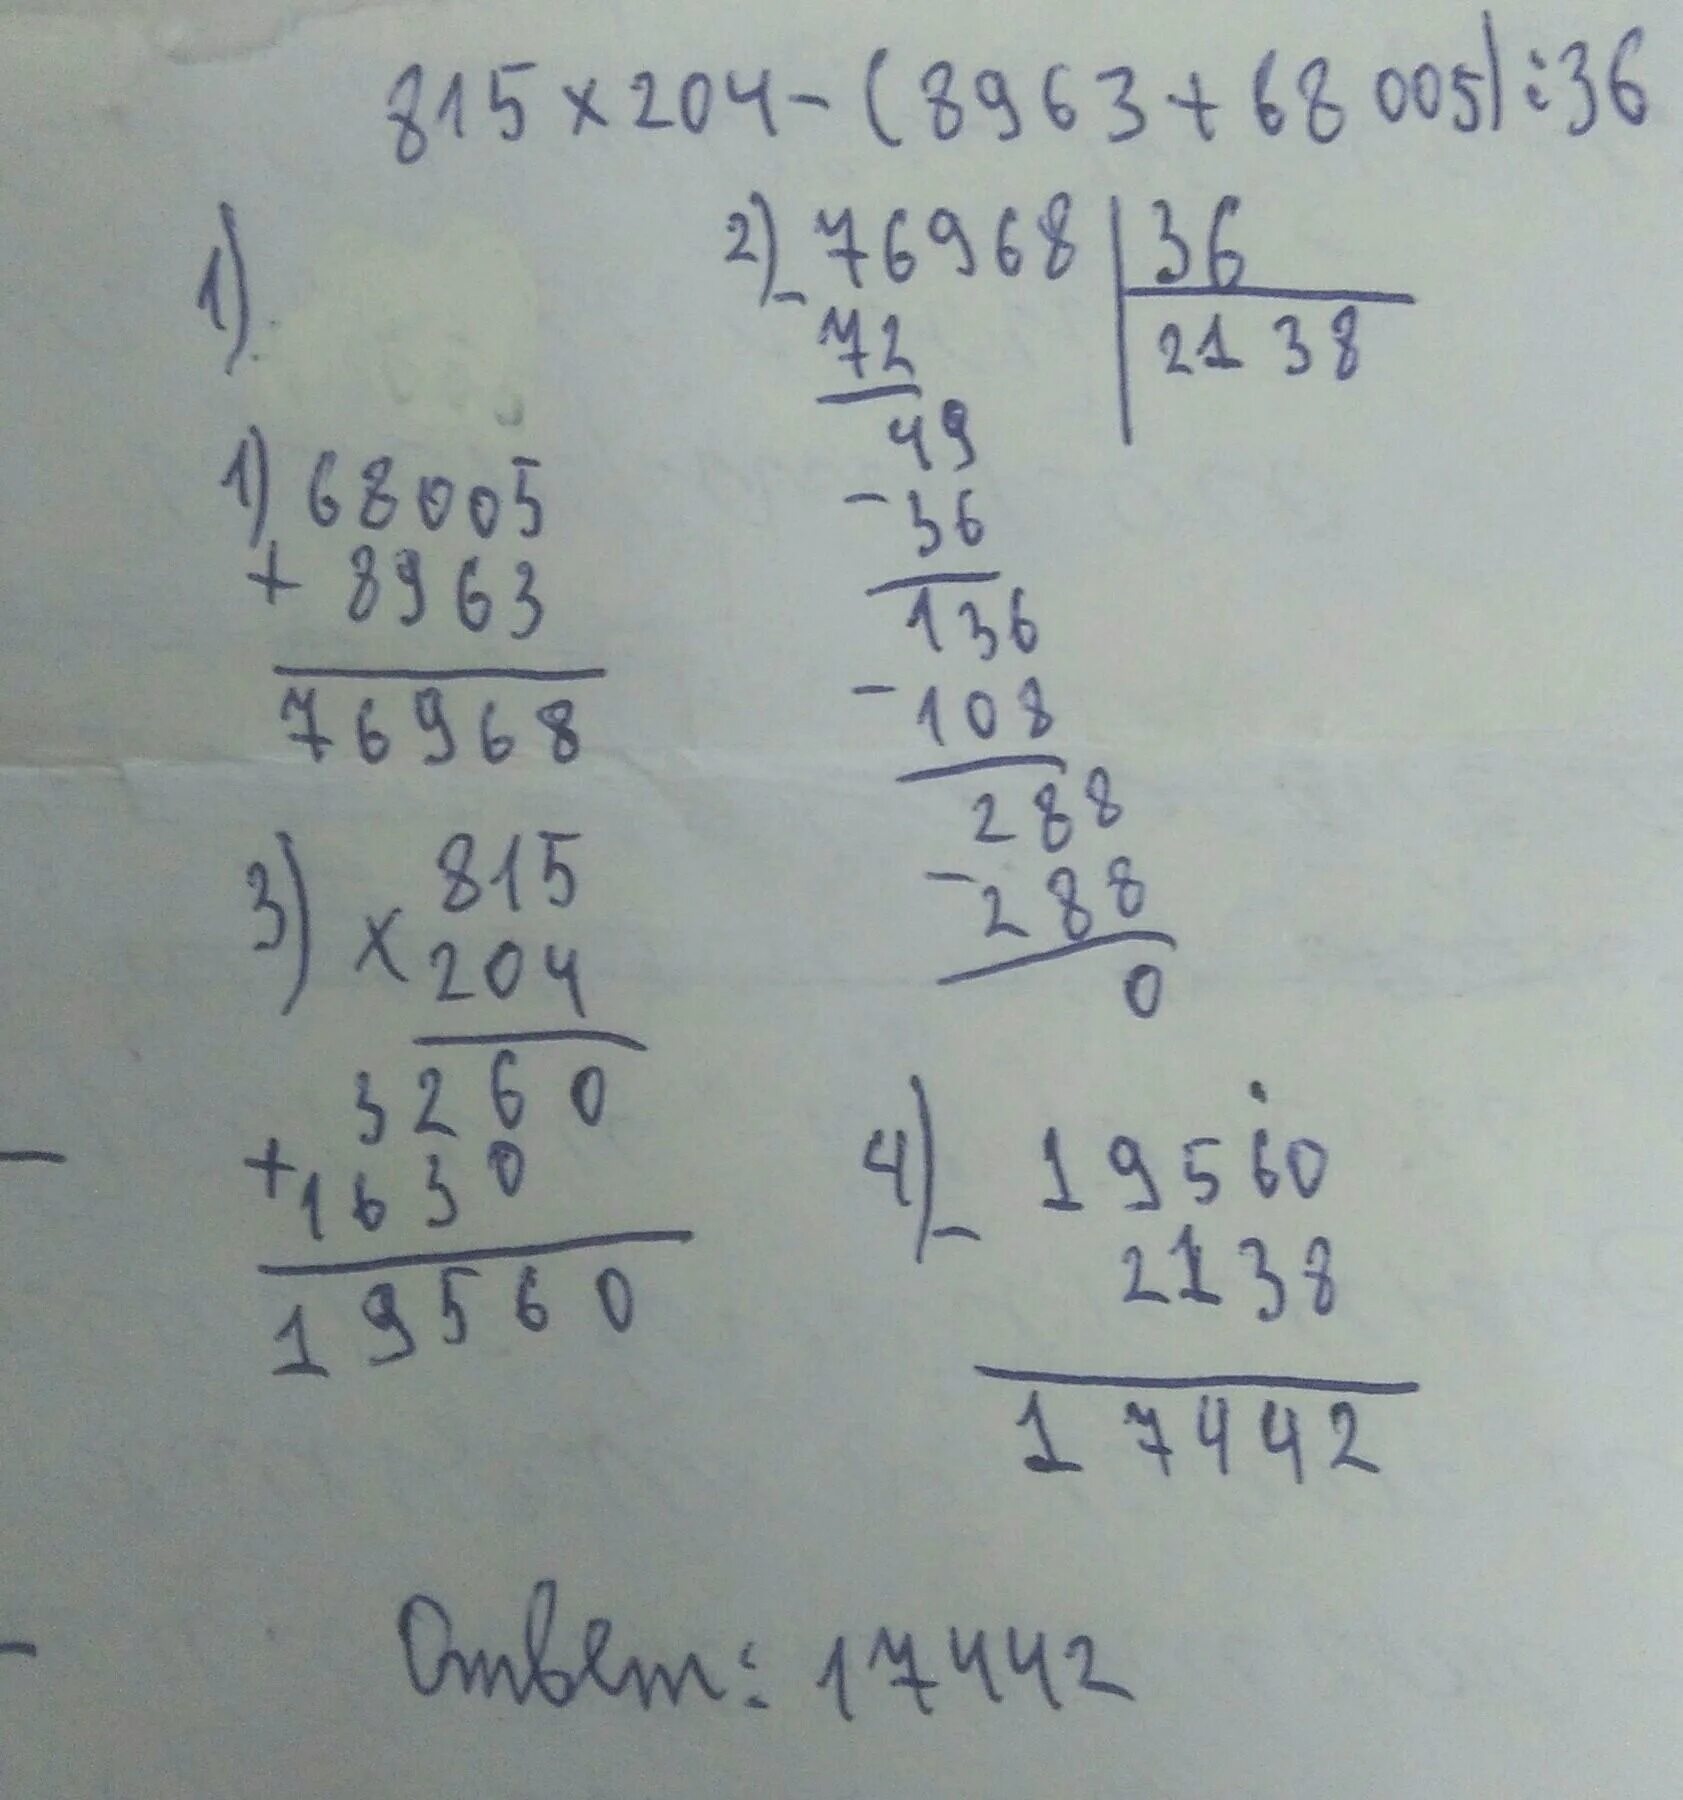 815 x 204 - (8963 + 68 005) : 36
1)
1) 68005
+ 8963
76968
2) - 76968 | 36
72 | 2138
49
- 36
136
- 108
288
- 288
0
3) x 815
204
3260
+ 1630
19560
4) - 19560
2138
17442
Ответ: 17442